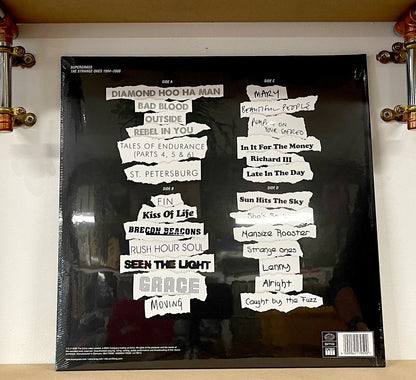 SUPERGRASS
THE STRANGE ONES 1994-2008
SIDE A
DIAMOND HOO HA MAN
BAD BLOOD
OUTSIDE
REBEL IN YOU
TALES OF ENDURANCE
(PARTS 4, 5 & 6)
ST. PETERSBURG
SIDE B
FIN
Kiss Of Life
BRECON BEACONS
RUSH HOUR SOUL
SEEN THE LIGHT
GRACE
MOVING
SIDE C
MARY
BEAUTIFUL PEOPLE
PUMP ON
YOUR STEREO
In It For The Money
Richard III
Late In The Day
SIDE D
Sun Hits The Sky
She's So
Mansize Rooster
Strange ones
Lenny
Alright
Caught by the Fuzz